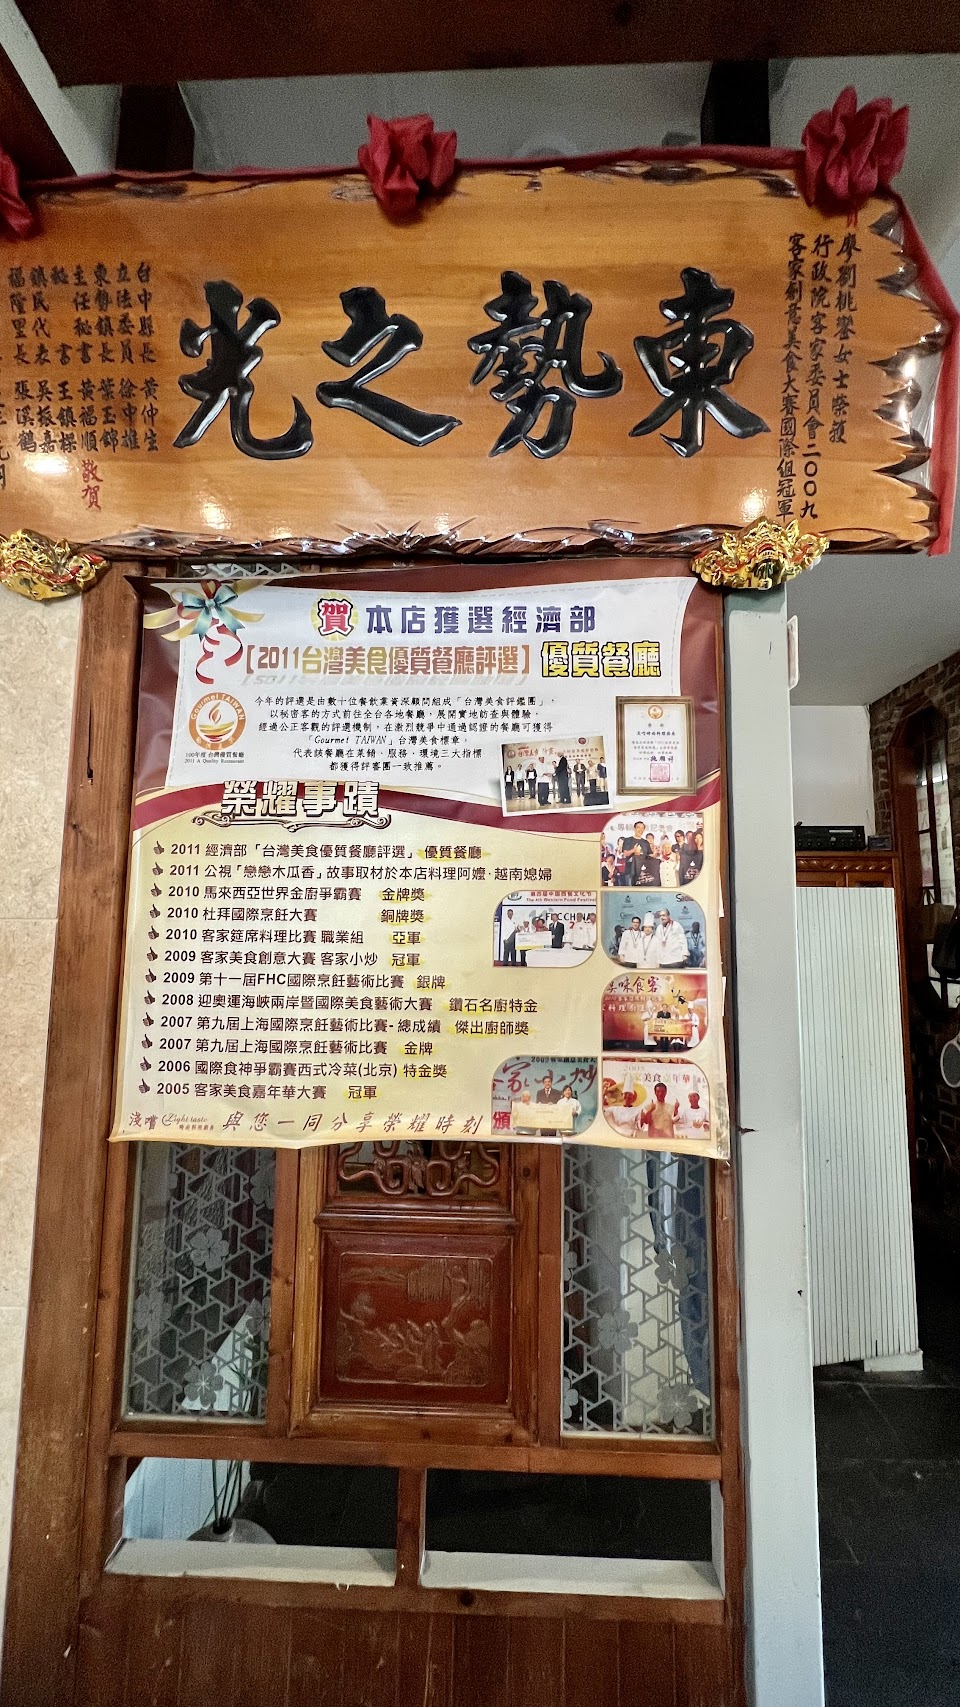 賀
廖劉桃鑾女士榮獲
行政院客家委員會二〇〇九
客家創意美食大賽國際組冠軍
東勢之光
台中縣長 黃仲生
立法委員 徐中雄
東勢鎮長 葉玉錦
主任秘書 黃福順
秘書 王鎮
鎮民代表 吳振嘉
福隆里長 張溪鶴
敬賀
賀 本店獲選經濟部
【2011台灣美食優質餐廳評選】優質餐廳
今年的評選是由數十位餐飲業資深顧問組成「台灣美食評鑑團」，
以秘密客的方式前往全台各地餐廳，展開實地訪查與體驗。
經過公正客觀的評選機制，在激烈競爭中通過認證的餐廳可獲得
「Gourmet TAIWAN」台灣美食標章，
代表該餐廳在菜餚、服務、環境三大指標
都獲得評審團一致推薦。
Gourmet TAIWAN
100年度 台灣優質餐廳
2011 A Quality Restaurant
榮耀事蹟
2011 經濟部「台灣美食優質餐廳評選」 優質餐廳
2011 公視「戀戀木瓜香」故事取材於本店料理阿嬤·越南媳婦
2010 馬來西亞世界金廚爭霸賽 金牌獎
2010 杜拜國際烹飪大賽 銅牌獎
2010 客家筵席料理比賽 職業組 亞軍
2009 客家美食創意大賽 客家小炒 冠軍
2009 第十一屆FHC國際烹飪藝術比賽 銀牌
2008 迎奧運海峽兩岸暨國際美食藝術大賽 鑽石名廚特金
2007 第九屆上海國際烹飪藝術比賽-總成績 傑出廚師獎
2007 第九屆上海國際烹飪藝術比賽 金牌
2006 國際食神爭霸賽西式冷菜(北京) 特金獎
2005 客家美食嘉年華大賽 冠軍
淺嚐 Light taste 與您一同分享榮耀時刻